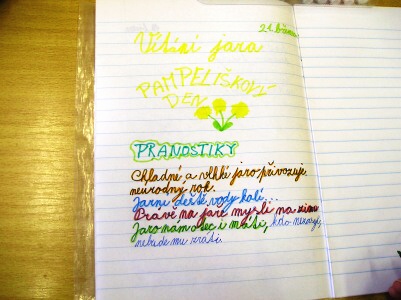 21. března
Vítání jara
PAMPELIŠKOVÝ
DEN
PRANOSTIKY
Chladné a vlhké jaro přivozuje
neúrodný rok.
Jarní deště vody kalí...
Pravě na jaře myslí na zimu
Jaro nám otec i máti, kdo nezasejí,
nebude mu žváti.